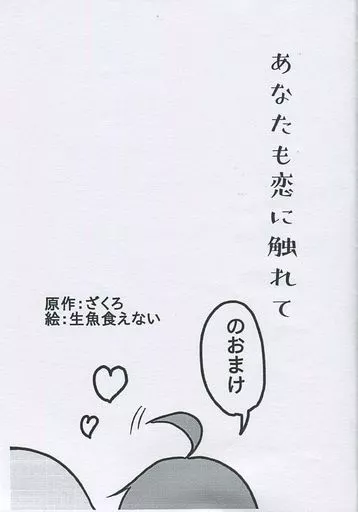 あなたも恋に触れて
のおまけ
原作:ざくろ
絵:生魚食えない